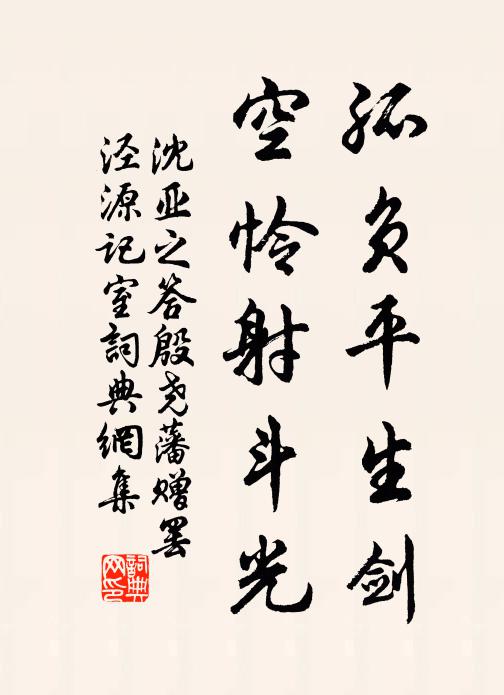 孤负平生剑
空怜射斗光
沈亚之答殷尧藩赠罢
泾源记室詞典網集
詞典网印